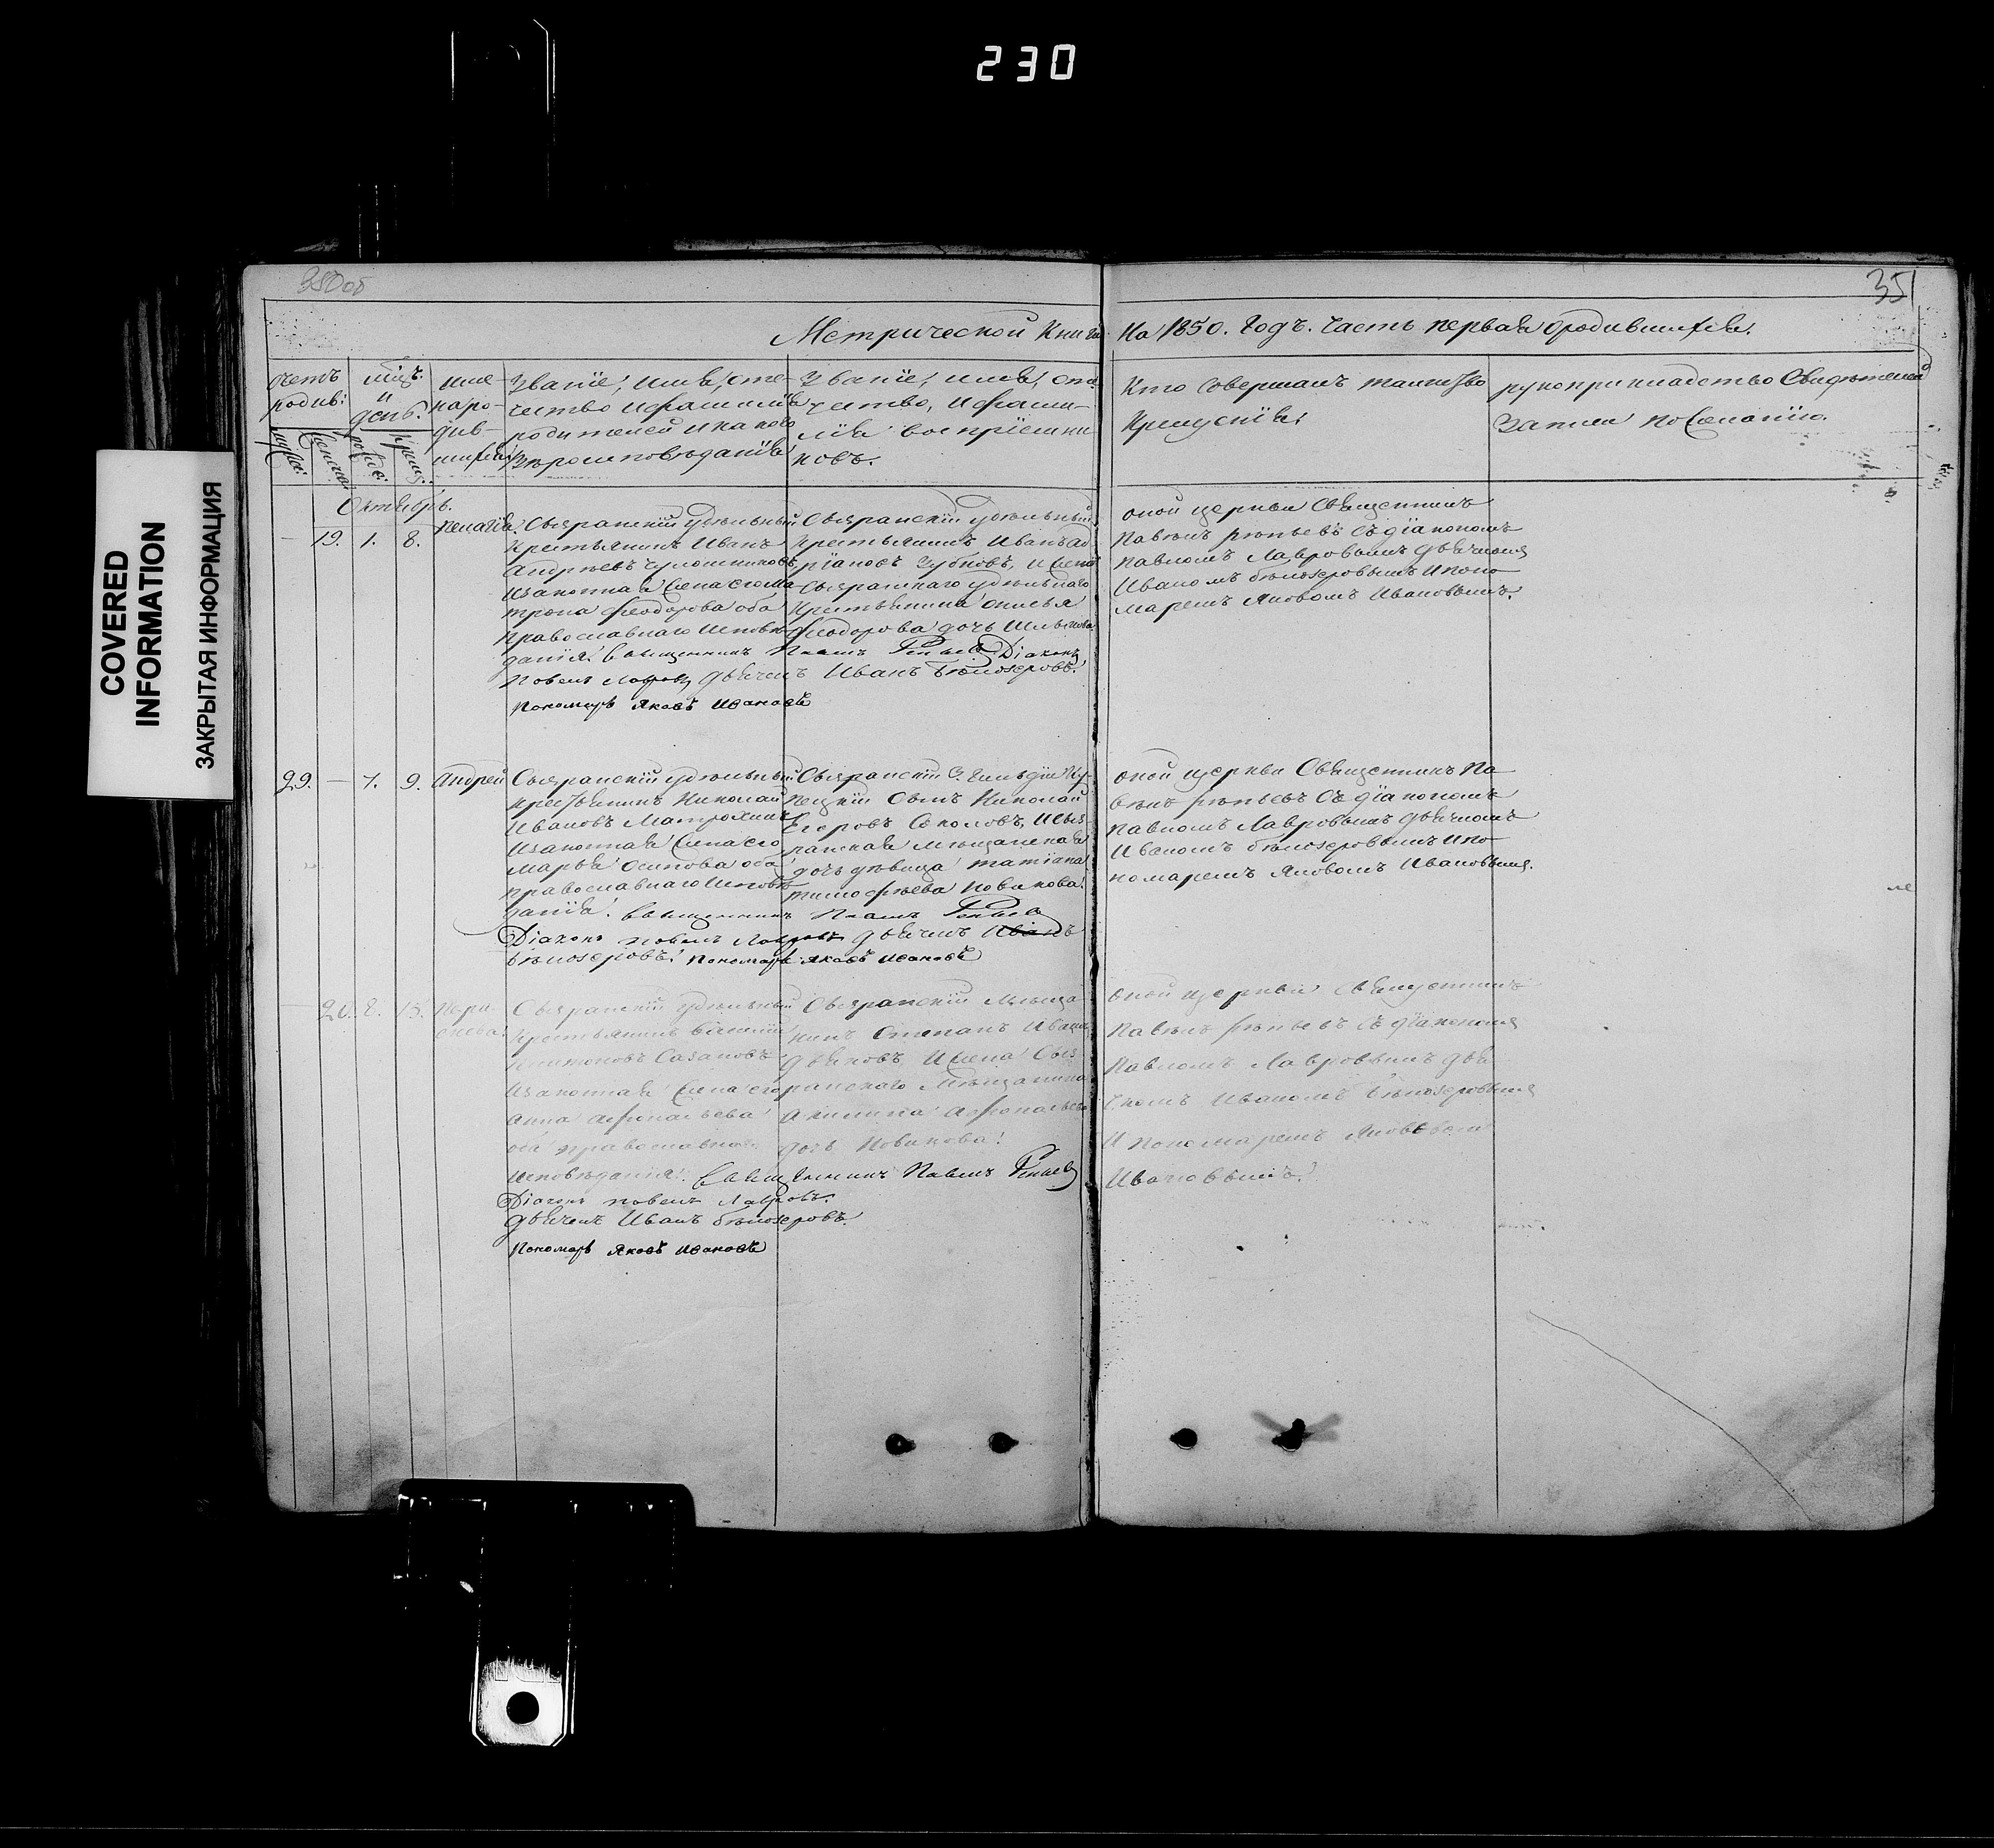 230
COVERED
INFORMATION
ЗАКРЫТАЯ ИНФОРМАЦИЯ
350об
351
Метрической Книги На 1850. Годъ. Часть первая о родившихся.
счетъ
родив:
мѣц:
и
день.
име-
на ро-
див-
шихся
Званіе, имя, оте-
чество и фамилія
родителей и каково
вѣроисповѣданія
Званіе, имя, оте
чество, и фами-
лія воспріемни
ковъ.
Кто совершалъ таинство
крещенія.
рукоприкладство Свидѣтелей
записи по желанію.
Октябрь.
19. 1. 8.
пелагія
Сызранскій удѣльный
крестьянинъ Иванъ
Андрѣевъ
и законная жена его Ма
трона Феодорова оба
православнаго исповѣ
данія. Священникъ Павелъ Рѣпьевъ Діаконъ
Павелъ Лавровъ дьячекъ Иванъ Бѣлозеровъ.
Пономарь Яковъ Ивановъ
Сызранскій удѣльный
крестьянинъ Иванъ Ад
ріановъ Зубковъ, и жена
Сызранскаго удѣльнаго
крестьянина
Феодорова дочь
оной церкви Священникъ
Павелъ Рѣпьевъ съ діакономъ
Павломъ Лавровымъ дьячкомъ
Иваномъ Бѣлозеровымъ и поно
маремъ Яковомъ Ивановымъ.
29. — 7. 9. Андрей
Сызранскій удѣльный
крестьянинъ Николай
Ивановъ Матрохинъ
и законная жена его
Марья Осипова оба
православнаго исповѣ
данія. Священникъ Павелъ Рѣпьевъ
Діаконъ Павелъ Лавровъ дьячекъ Иванъ
Бѣлозеровъ. Пономарь Яковъ Ивановъ
Сызранскій 3. гильдіи ку-
пецкій сынъ Николай
Егоровъ Соколовъ, и Сыз-
ранская мѣщанская
дочь дѣвица Татіана
Тимофѣева Новикова.
оной церкви Священникъ Па
велъ Рѣпьевъ съ діакономъ
Павломъ Лавровымъ дьячкомъ
Иваномъ Бѣлозеровымъ и по
номаремъ Яковомъ Ивановымъ.
20. 8. 15.
Сызранскій удѣльный
крестьянинъ Василій
Платоновъ Сазановъ
и законная жена его
Анна Афонасьева
оба православнаго
исповѣданія. Священникъ Павелъ Рѣпьевъ
Діаконъ Павелъ Лавровъ.
дьячекъ Иванъ Бѣлозеровъ.
Пономарь Яковъ Ивановъ
Сызранскій мѣща
нинъ Степанъ Ивановъ
Дьяковъ и жена Сыз
ранскаго мѣщанина
Акилина Афонасьева
дочь Новикова.
оной церкви Священникъ
Павелъ Рѣпьевъ съ діакономъ
Павломъ Лавровымъ дья
чкомъ Иваномъ Бѣлозеровымъ
и пономаремъ Яковомъ
Ивановымъ.